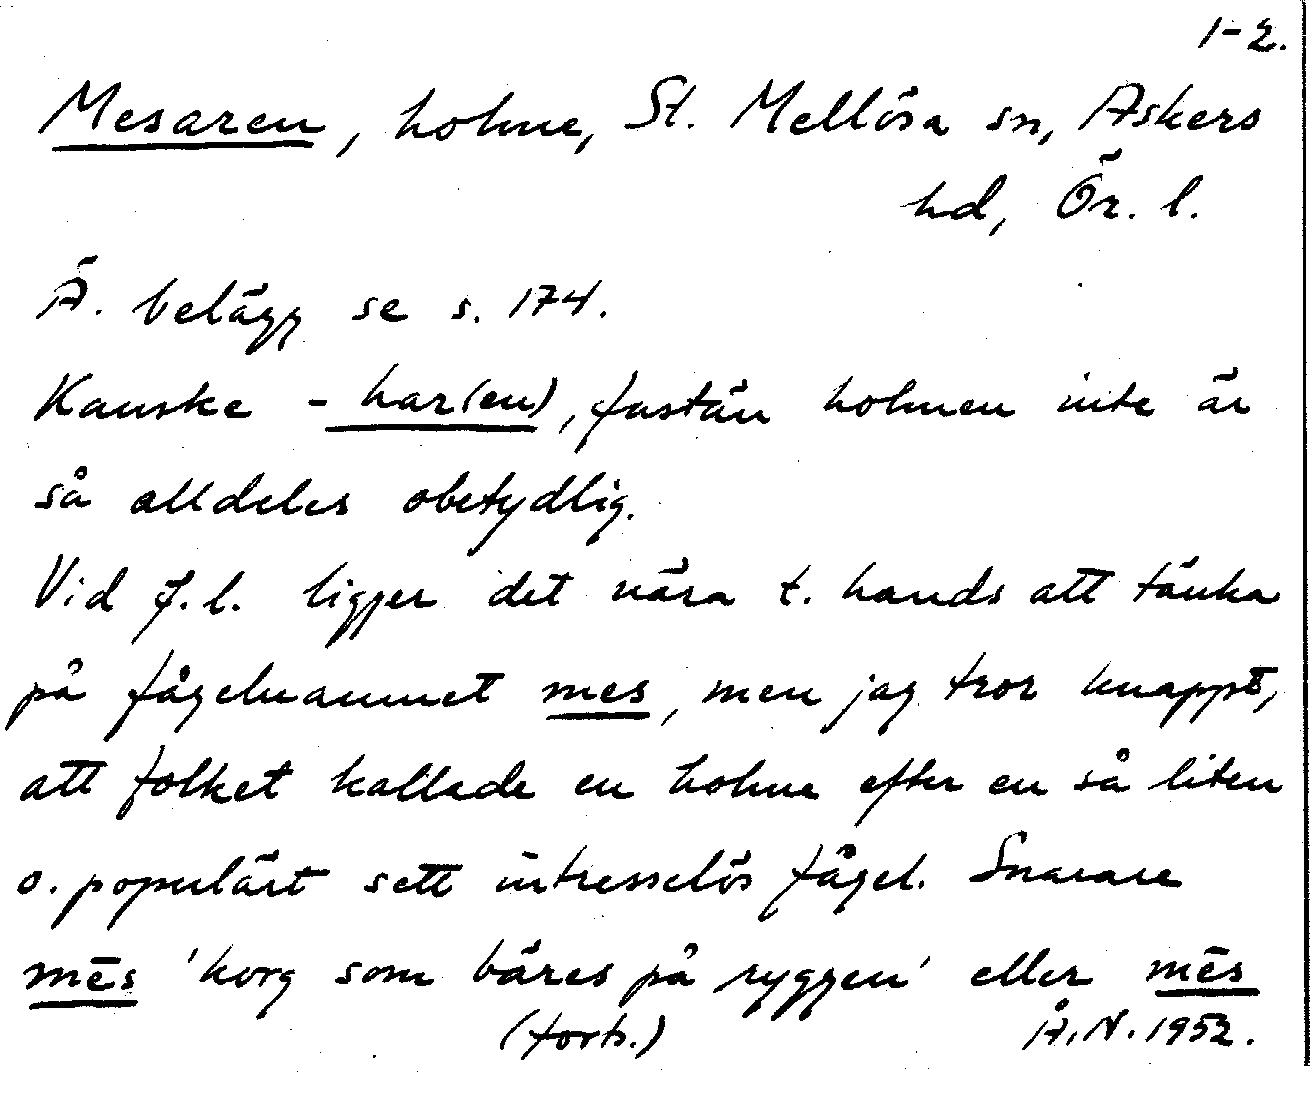 1-2.
Mesaren, holme, St. Mellösa sn, Askers
hd, Ör. l.
Ä. belägg se s. 174.
Kanske -har(en), fastän holmen inte är
så alldeles obetydlig.
Vid f.l. ligger det nära t. hands att tänka
på fågelnamnet mes, men jag tror knappt,
att folket kallade en holme efter en så liten
o. populärt sett intresselös fågel. Snarare
mēs 'korg som bäres på ryggen' eller mēs
(forts.) Å.N. 1952.